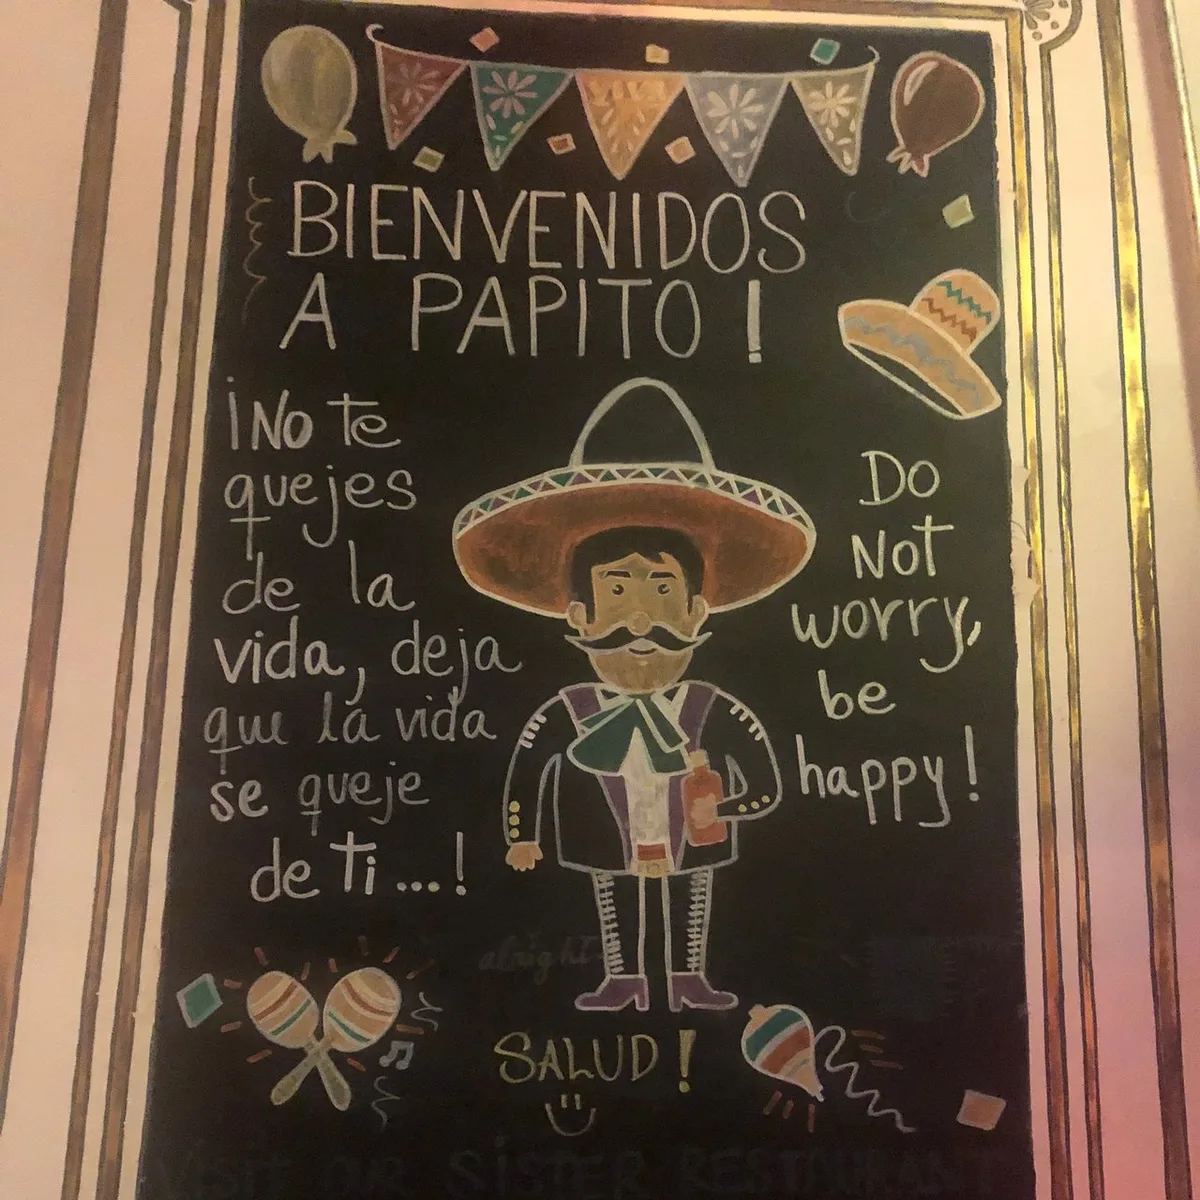 BIENVENIDOS
A PAPITO!
¡No te
quejes
de la
vida, deja
que la vida
se queje
de ti...!
Do
Not
worry,
be
happy!
alright
SALUD!
VISIT OUR SISTER RESTAURANT